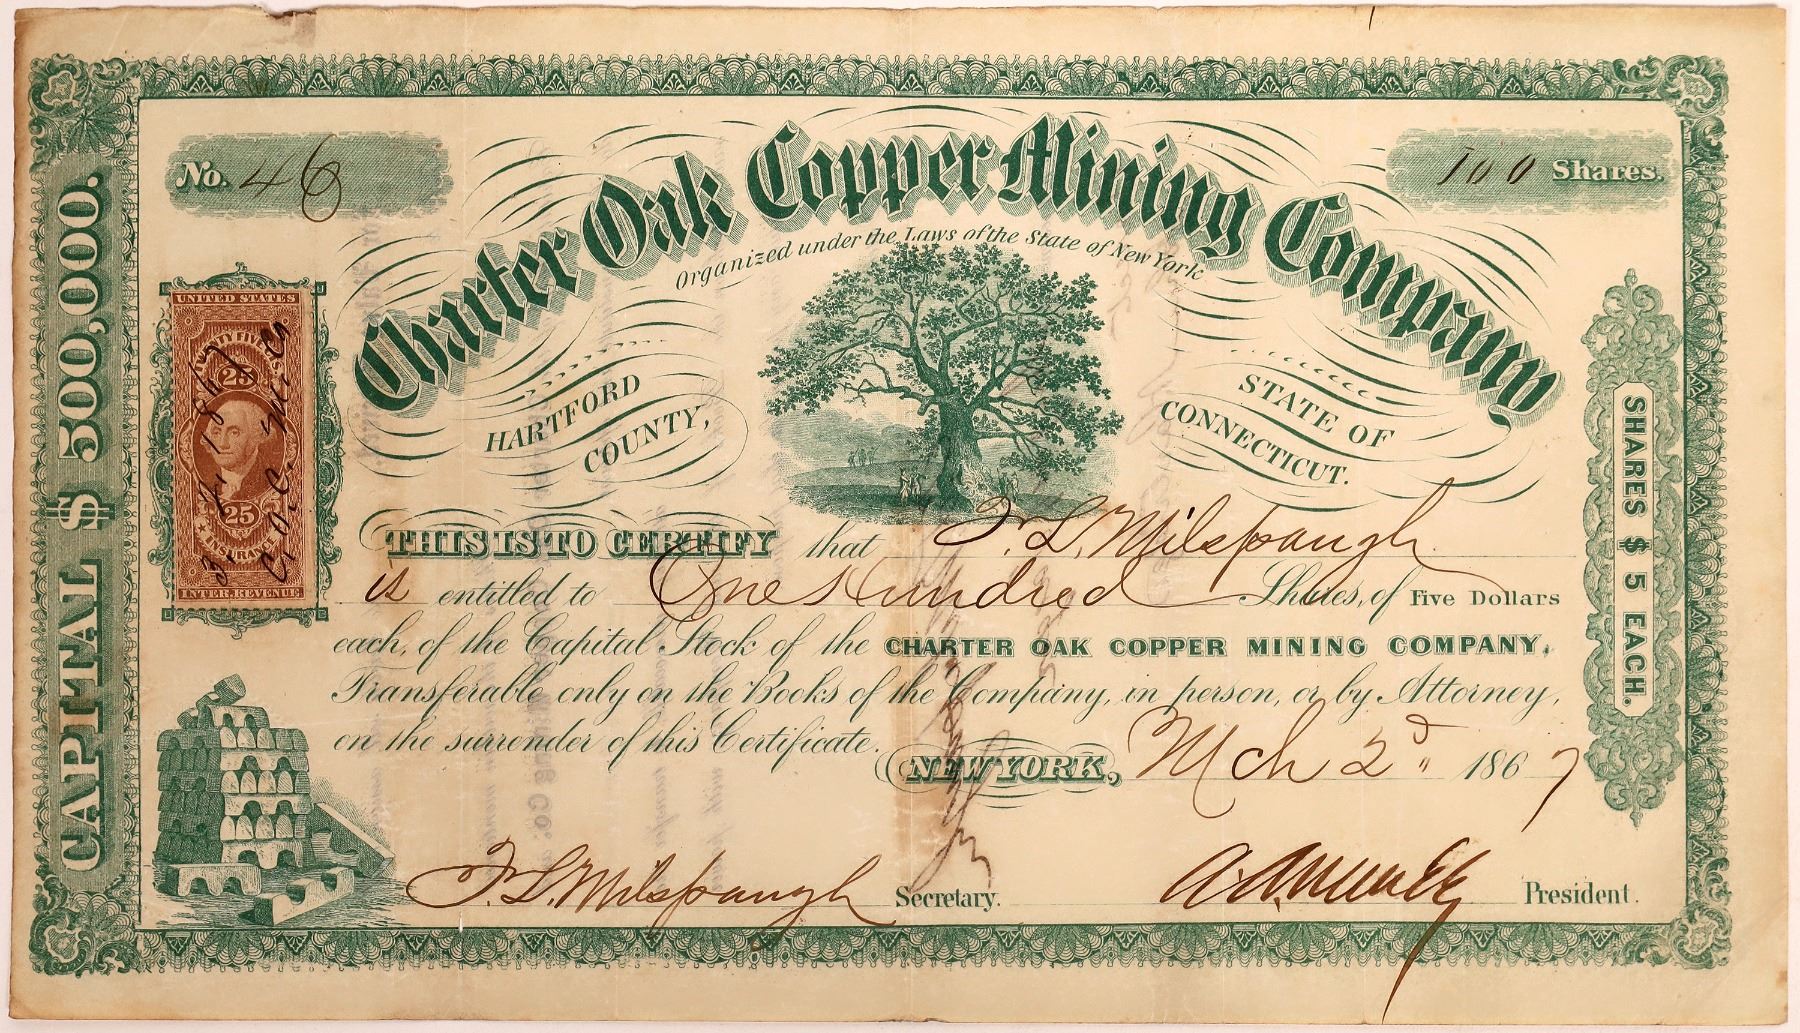 No. 46
100 Shares.
Charter Oak Copper Mining Company
Organized under the Laws of the State of New York
HARTFORD COUNTY,
STATE OF CONNECTICUT.
CAPITAL $ 500,000.
SHARES $ 5 EACH.
UNITED STATES
TWENTY FIVE CENTS
25
25
INSURANCE
INTER. REVENUE
C. O. C. M. Co
THIS IS TO CERTIFY that F. L. Milspaugh
is entitled to One Hundred Shares, of Five Dollars
each, of the Capital Stock of the CHARTER OAK COPPER MINING COMPANY,
Transferable only on the Books of the Company, in person, or by Attorney,
on the surrender of this Certificate.
NEW YORK, Mch 2d 1867
F. L. Milspaugh Secretary.
President.